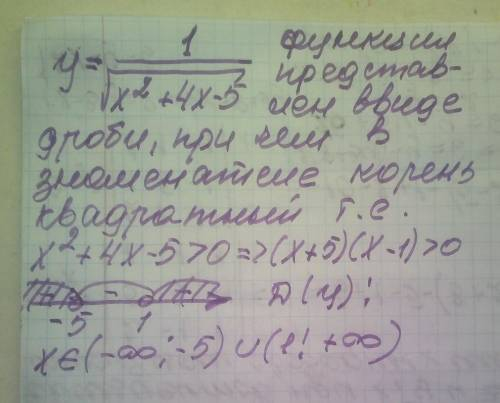 y = 1/√(x²+4x-5) функция
представ-
лен ввиде
дроби, при чем в
знаменателе корень
квадратный т.е.
x²+4x-5>0 => (x+5)(x-1)>0
+ - + D(y):
-5 1
x∈(-∞; -5)∪(1; +∞)